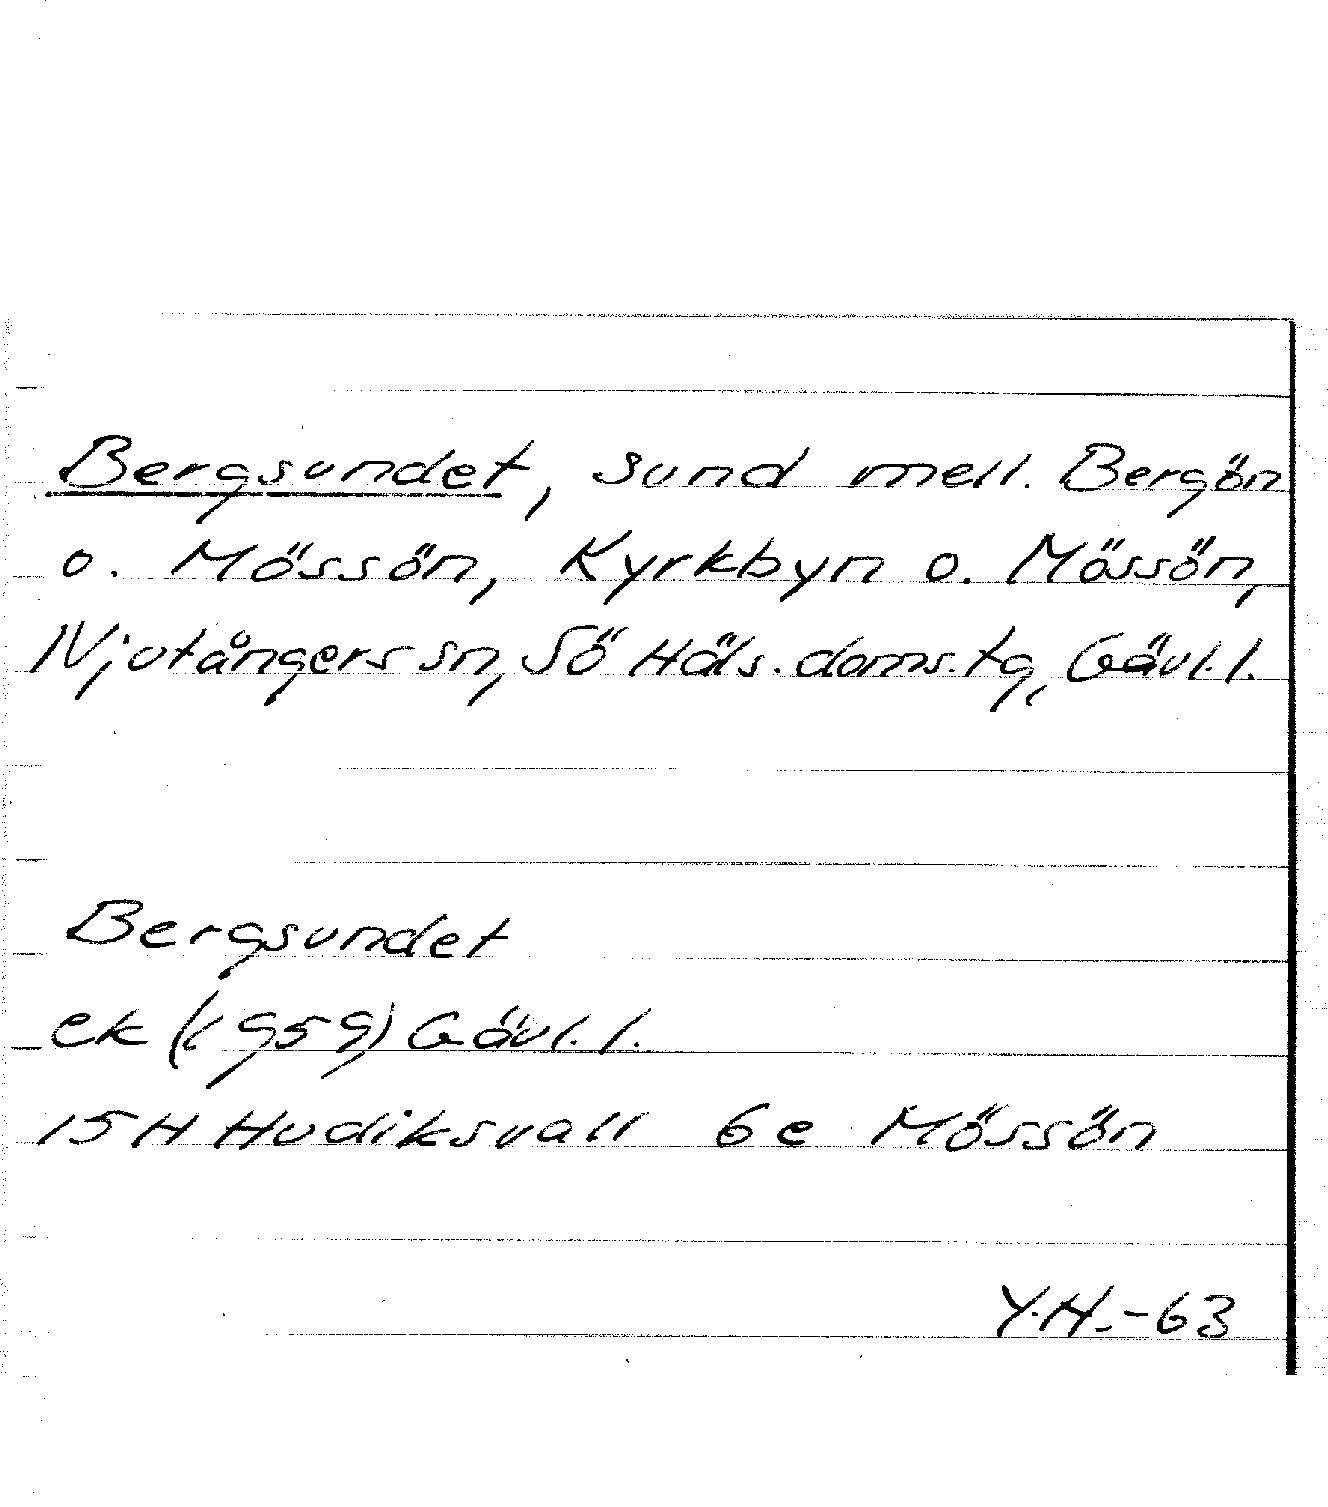 Bergsundet, sund mell. Bergön
o. Mössön, Kyrkbyn o. Mössön,
Njutångers sn, Sö Häls. doms. tg, Gävl. l.
Bergsundet
ek (1959) Gävl. l.
15H Hudiksvall 6e Mössön
Y.H.-63